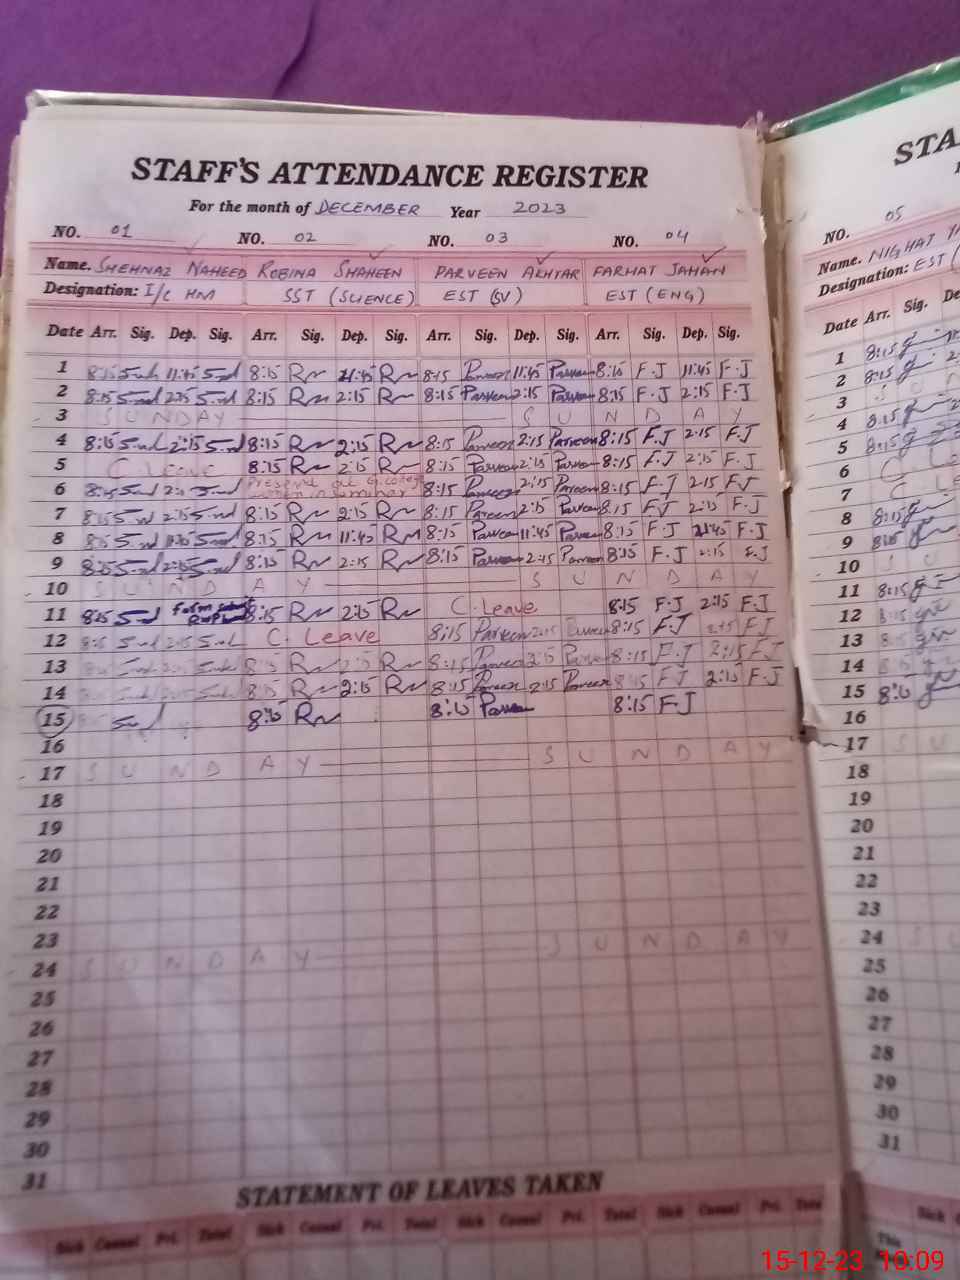 STAFF'S ATTENDANCE REGISTER
For the month of DECEMBER Year 2023
NO. 01 NO. 02 NO. 03 NO. 04
Name. SHEHNAZ NAHEED ROBINA SHAHEEN PARVEEN AKHTAR FARHAT JAHAN
Designation: I/C HM SST (SCIENCE) EST (SV) EST (ENG)
Date Arr. Sig. Dep. Sig. Arr. Sig. Dep. Sig. Arr. Sig. Dep. Sig. Arr. Sig. Dep. Sig.
1 8:15 11:45 8:15 11:45 8:15 Parveen 11:45 Parveen 8:15 F.J 11:45 F.J
2 8:15 2:15 8:15 2:15 8:15 Parveen 2:15 Parveen 8:15 F.J 2:15 F.J
3 SUNDAY SUNDAY
4 8:15 2:15 8:15 2:15 8:15 Parveen 2:15 Parveen 8:15 F.J 2:15 F.J
5 C. Leave 8:15 2:15 8:15 Parveen 2:15 Parveen 8:15 F.J 2:15 F.J
6 8:15 2:15 Present at G. college women in seminar 8:15 Parveen 2:15 Parveen 8:15 F.J 2:15 F.J
7 8:15 2:15 8:15 2:15 8:15 Parveen 2:15 Parveen 8:15 F.J 2:15 F.J
8 8:15 8:15 11:45 8:15 Parveen 11:45 Parveen 8:15 F.J 11:45 F.J
9 8:15 2:15 8:15 2:15 8:15 Parveen 2:15 Parveen 8:15 F.J 2:15 F.J
10 SUNDAY SUNDAY
11 8:15 8:15 2:15 C. Leave 8:15 F.J 2:15 F.J
12 8:15 2:15 C. Leave 8:15 Parveen 2:15 Parveen 8:15 F.J 2:15 F.J
13 8:15 2:15 8:15 2:15 8:15 Parveen 2:15 Parveen 8:15 F.J 2:15 F.J
14 8:15 2:15 8:15 2:15 8:15 Parveen 2:15 Parveen 8:15 F.J 2:15 F.J
15 8:15 8:15 8:15 Parveen 8:15 F.J
16
17 SUNDAY SUNDAY
18
19
20
21
22
23
24 SUNDAY SUNDAY
25
26
27
28
29
30
31
STATEMENT OF LEAVES TAKEN
Sick Casual Pri. Total Sick Casual Pri. Total Sick Casual Pri. Total Sick Casual Pri. Total
STA
NO. 05
Name. NIGHAT
Designation: EST
Date Arr. Sig.
1 8:15
2 8:15
3 S U
4 8:15
5 8:15
6 C
7 C. Le
8 8:15
9 8:15
10 S U
11 8:15
12 8:15
13 8:15
14 8:15
15 8:15
16
17 S U
18
19
20
21
22
23
24
25
26
27
28
29
30
31
Sick
This
15-12-23 10:09